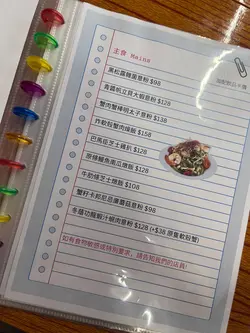 主食 Mains
黑松露雜菌意粉 $98
青醬帆立貝大蝦意粉 $138
蟹肉蟹棒明太子意粉 $138
炸軟殼蟹肉燴飯 $158
巴馬臣芝士雞扒 $128
原條鰻魚南瓜燴飯 $128
牛肋條芝士燴飯 $108
蟹籽卡邦尼忌廉蘑菇意粉 $98
冬蔭功龍蝦汁蜆肉意粉 $138 (+$38 原隻軟殼蟹)
如有食物敏感或特別要求，請告知我們的店員！